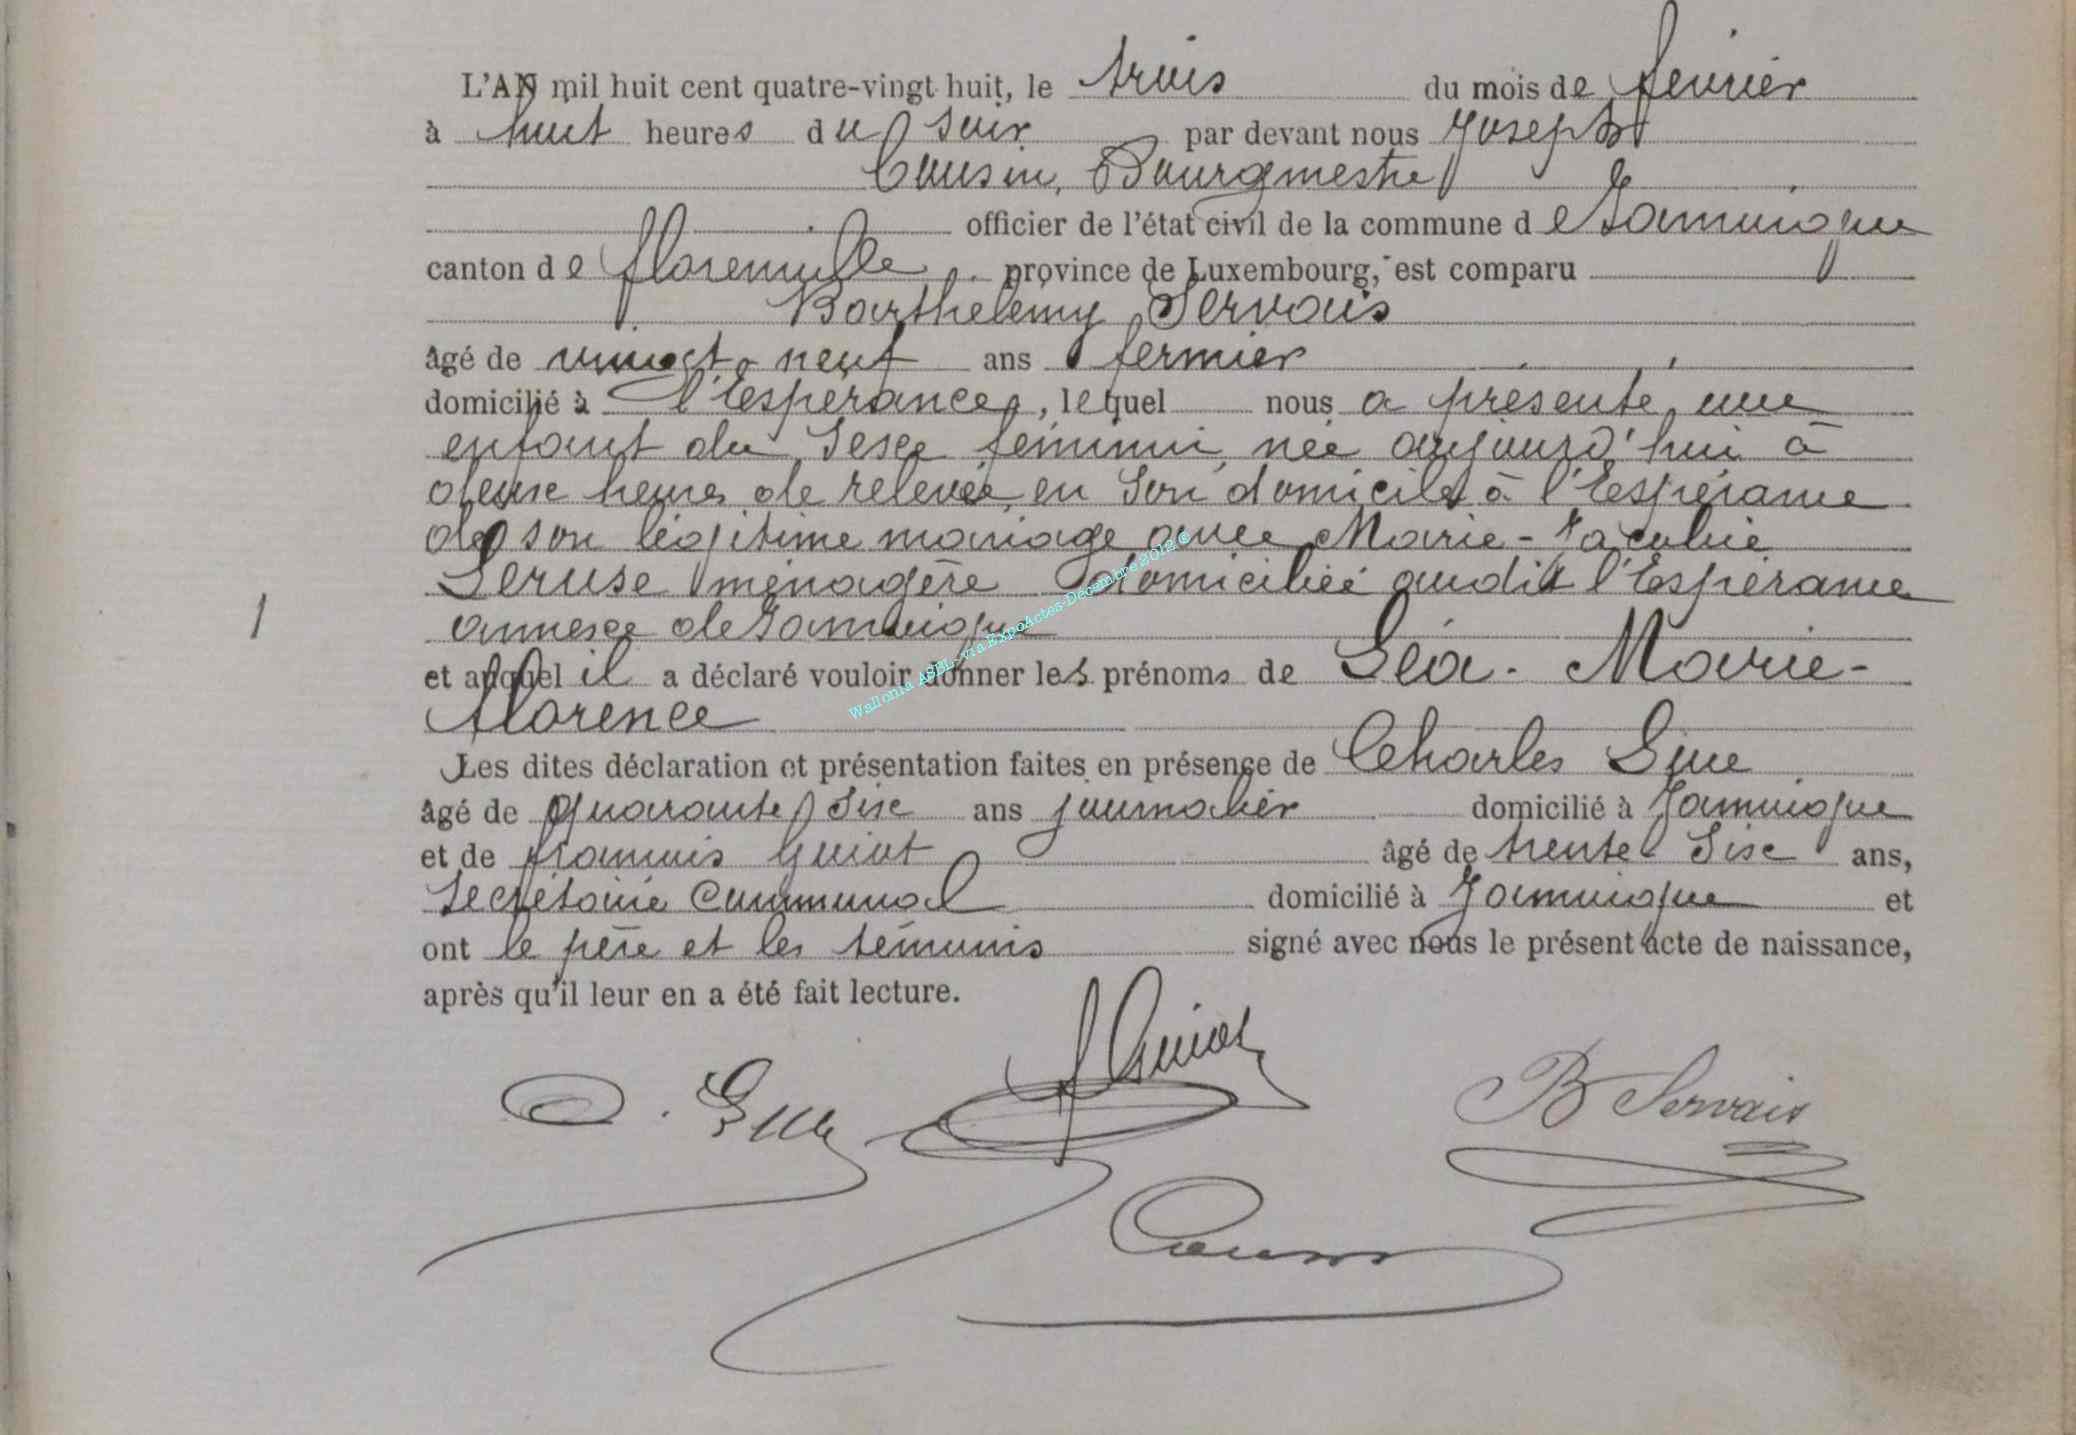 L'AN mil huit cent quatre-vingt huit, le trois du mois de février
à huit heures du soir par devant nous Joseph
Cousin, Bourgmestre
officier de l'état civil de la commune de Jamoigne
canton de florenville province de Luxembourg, est comparu
Barthélemy Servais
âgé de vingt-neuf ans fermier
domicilié à l'Espérance, lequel nous a présenté une
enfant du Sexe féminin, née aujourd'hui à
heures de relevée, en Son domicile à l'Espérance
de son légitime mariage avec Marie-
Leruse ménagère domiciliée audit l'Espérance
annexe de Jamoigne
1
et auquel il a déclaré vouloir donner les prénoms de Léa-Marie-
florence
Les dites déclaration et présentation faites en présence de Charles
âgé de quarante Six ans journalier domicilié à Jamoigne
et de françois Guiot âgé de trente Six ans,
Secrétaire Communal domicilié à Jamoigne et
ont le père et les témoins signé avec nous le présent acte de naissance,
après qu'il leur en a été fait lecture.
f Guiot
B Servais
Cousin
Wallonia ASBL-via ExpoActes-Decembre 2012 ©